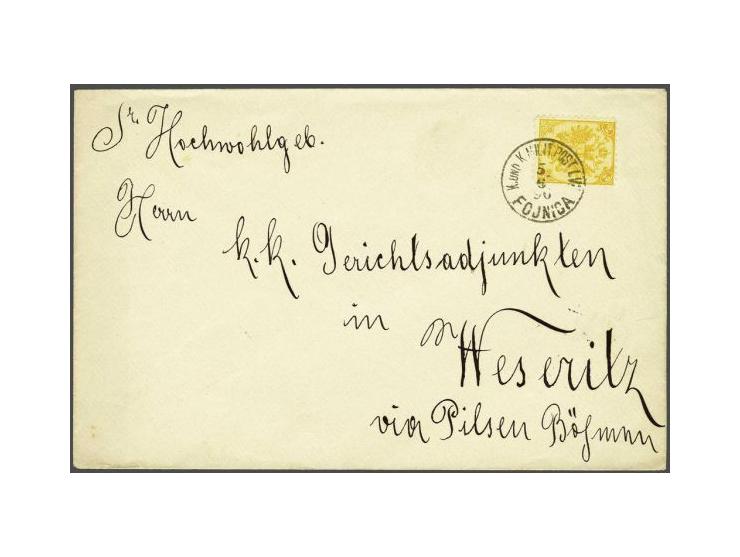 Sr. Hochwohlgeb.
Herrn
k.k. Gerichtsadjunkten
in
Weseritz
via Pilsen Böhmen
K. UND K. MILIT. POST LIV.
5
96
FOJNICA